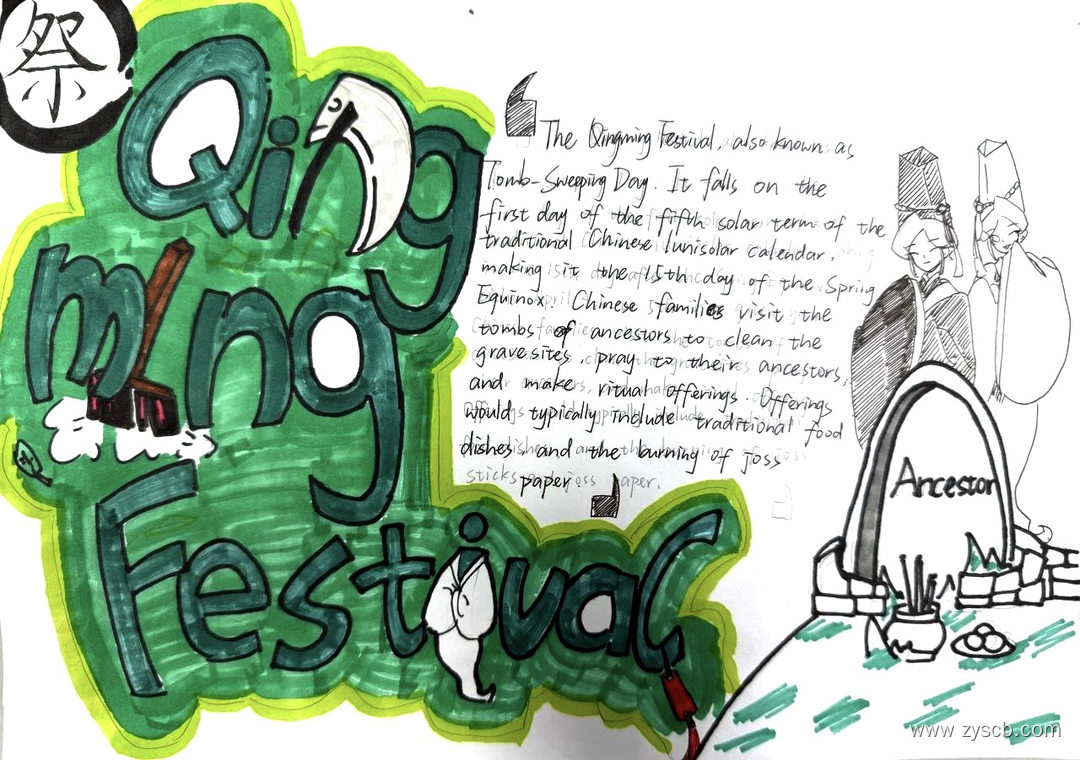 祭
Qing
ming
Festival
The Qingming Festival, also known as
Tomb-Sweeping Day. It falls on the
first day of the fifth solar term of the
traditional Chinese lunisolar calendar,
making it the 15th day of the Spring
Equinox. Chinese families visit the
tombs of ancestors to clean the
gravesites, pray to their ancestors,
and make ritual offerings. Offerings
would typically include traditional food
dishes and the burning of joss
sticks paper
Ancestor
www.zyscb.com